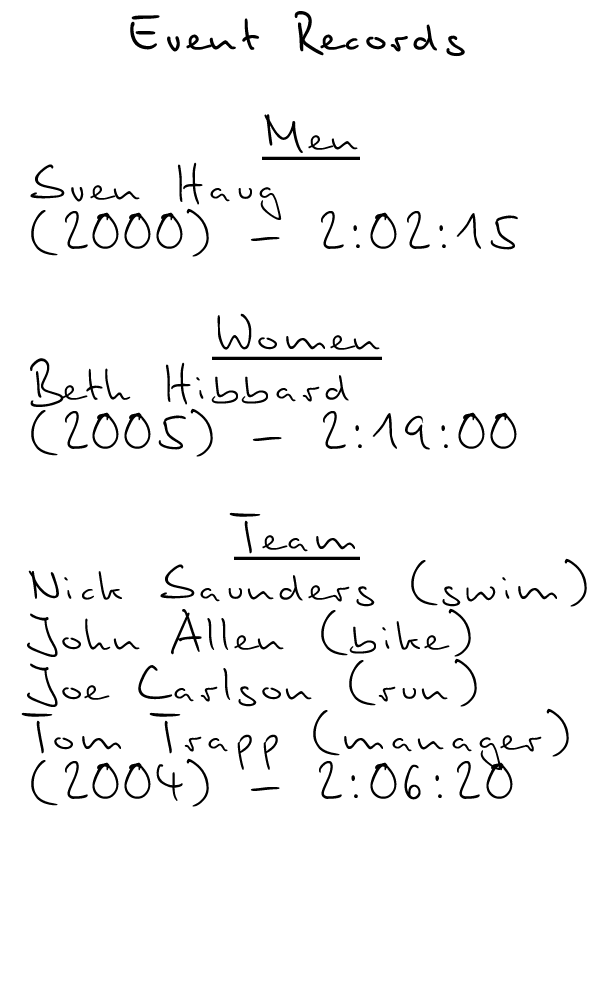 Event Records
Men
Sven Haug
(2000) - 2:02:15
Women
Beth Hibbard
(2005) - 2:19:00
Team
Nick Saunders (swim)
John Allen (bike)
Joe Carlson (run)
Tom Trapp (manager)
(2004) - 2:06:20